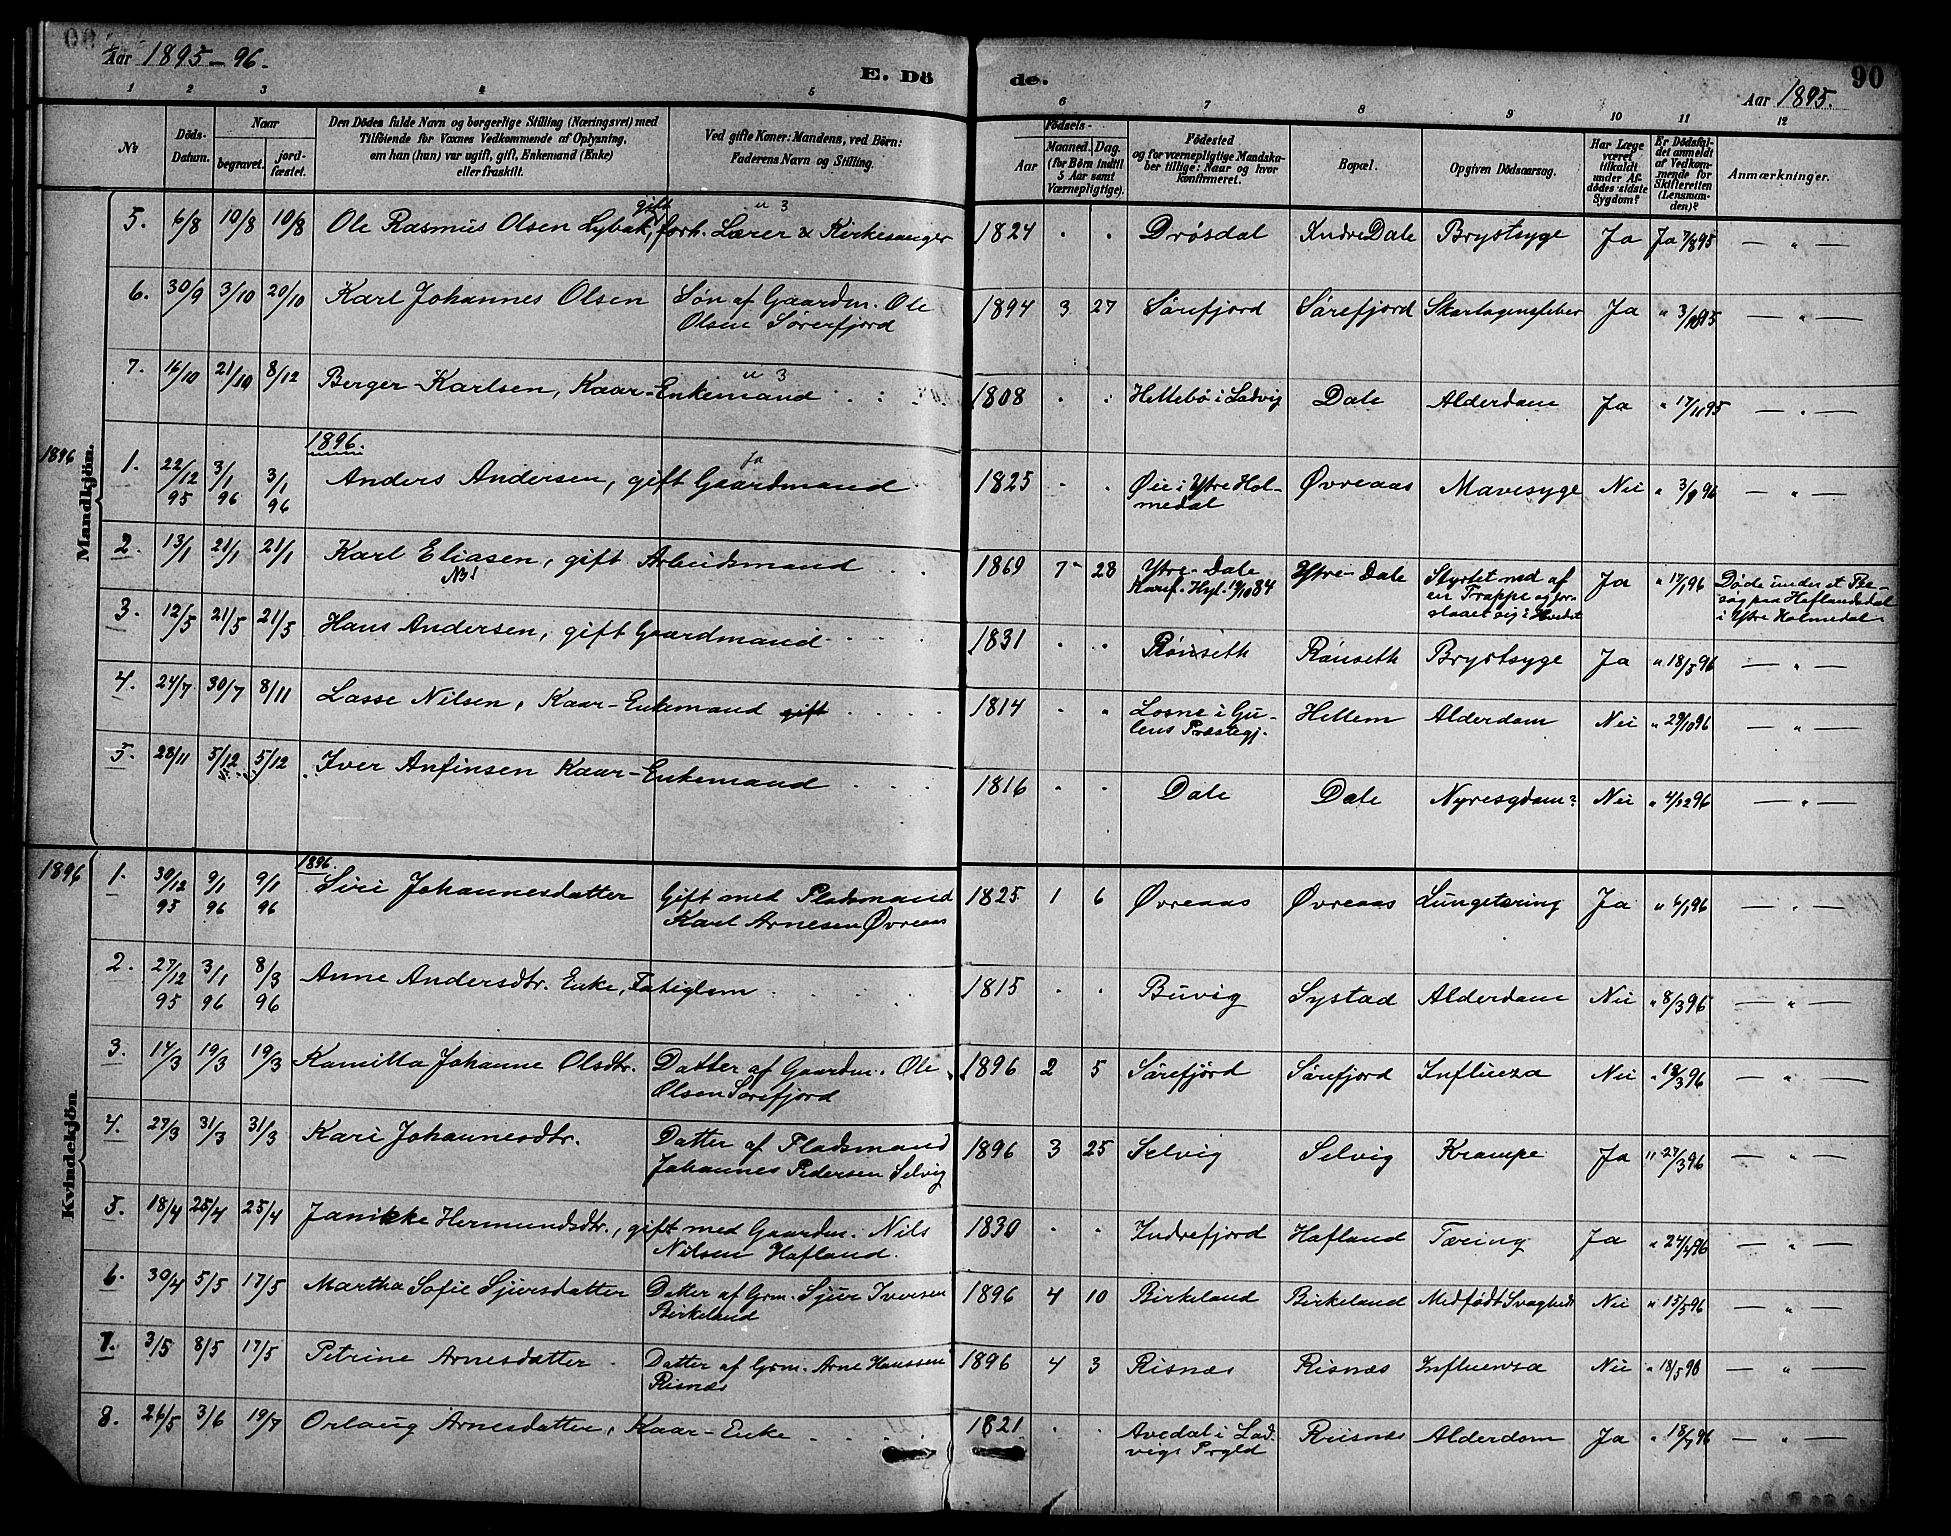 Aar 1895-96.
E. Dö
de.
Aar 1895.
90
1 2 3 4 5 6 7 8 9 10 11 12
No
Döds-Datum.
Naar
begravet.
jord-fæstet.
Den Dödes fulde Navn og borgerlige Stilling (Næringsvei) med
Tilföiende for Voxnes Vedkommende af Oplysning,
om han (hun) var ugift, gift, Enkemand (Enke)
eller fraskilt.
Ved gifte Koner: Mandens, ved Börn:
Faderens Navn og Stilling.
Födsels-
Aar
Maaned. Dag.
(for Börn indtil
5 Aar samt
Værnepligtige).
Födested
og for værnepligtige Mandska-
ber tillige: Naar og hvor
konfirmeret.
Bopæl.
Opgiven Dödsaarsag.
Har Læge
været
tilkaldt
under Af-
dödes sidste
Sygdom?
Er Dödsfal-
det anmeldt
af Vedkom-
mende for
Skifteretten
(Lensman-
den)?
Anmærkninger.
Mandkjön.
5. 6/8 10/8 10/8 Ole Rasmus Olsen Lybak, gift forh. Lærer & Kirkesanger 1824 " " Drøsdal Indre Dale Brystsyge Ja Ja 7/8 95 — " —
6. 30/9 3/10 20/10 Karl Johannes Olsen Søn af Gaardm. Ole 1894 3 27 Sørefjord Sørefjord Skarlagensfeber Ja " 3/10 95 — " —
Olsen Sørefjord
7. 16/10 21/10 8/12 Berger Karlsen, Kaar-Enkemand 1808 " " Hellebø i Ladvig Dale Alderdom Ja " 17/11 95 — " —
1896
1896.
1. 22/12 95 3/1 96 3/1 96 Anders Andersen, gift Gaardmand 1825 " " Øie i Ytre Hol-
medal Øvreaas Mavesyge Nei " 3/1 96 — " —
2. 13/1 21/1 21/1 Karl Eliasen, gift Arbeidsmand 1869 7 28 Ytre-Dale
Konf. Hyl. 19/10 84 Ytre-Dale Styrtet ned af
en Trappe og for-
slaaet sig i Hovedet Ja " 17/1 96 Døde under et Be-
søg paa Haflandsdal
i Ytre Holmedal.
NB!
3. 12/5 21/5 21/5 Hans Andersen, gift Gaardmand 1831 " " Rønseth Rønseth Brystsyge Ja " 18/5 96 — " —
4. 24/7 30/7 8/11 Lasse Nilsen, Kaar-Enkemand gift 1814 " " Losne i Gu-
lens Præstegj. Hellem Alderdom Nei " 29/10 96 — " —
5. 28/11 5/12 5/12 Iver Anfinsen Kaar-Enkemand 1816 " " Dale Dale Nyresygdom? Nei " 4/12 96 — " —
Kvindekjön
1896
1896.
1. 30/12 95 9/1 96 9/1 96 Siri Johannesdatter Gift med Pladsmand 1825 1 6 Øvreaas Øvreaas Lungetæring Ja " 6/1 96 — " —
Karl Arnesen Øvreaas
2. 27/12 95 3/1 96 8/3 96 Anne Andersdtr. Enke, Fatiglem 1815 " " Buvig Systad Alderdom Nei " 8/3 96 — " —
3. 14/3 19/3 19/3 Kamilla Johanne Olsdtr. Datter af Gaardm. Ole 1896 2 5 Sørefjord Sørefjord Influeza Nei " 18/3 96 — " —
Olsen Sørefjord
4. 27/3 31/3 31/3 Kari Johannesdtr. Datter af Pladsmand 1896 3 25 Selvig Selvig Krampe Ja " 27/3 96 — " —
Johannes Pedersen Selvig
5. 18/4 25/4 25/4 Janikke Hermundsdtr., gift med Gaardm. Nils 1830 " " Indrefjord Hafland Tæring Ja " 24/4 96 — " —
Nilsen Hafland.
6. 30/4 5/5 17/5 Martha Sofie Sjursdatter Datter af Grm. Sjur Iversen 1896 4 10 Birkeland Birkeland Medfødt Svaghed Nei " 15/5 96 — " —
Birkeland
7. 3/5 8/5 17/5 Petrine Arnesdatter Datter af Grm. Arne Hanssen 1896 4 3 Risnæs Risnæs Influensa Nei " 18/5 96 — " —
Risnæs
8. 26/5 3/6 19/7 Orlaug Arnesdatter, Kaar-Enke 1821 " " Avedal i Lad-
vigs Prgld Risnæs Alderdom Ja " 18/7 96 — " —